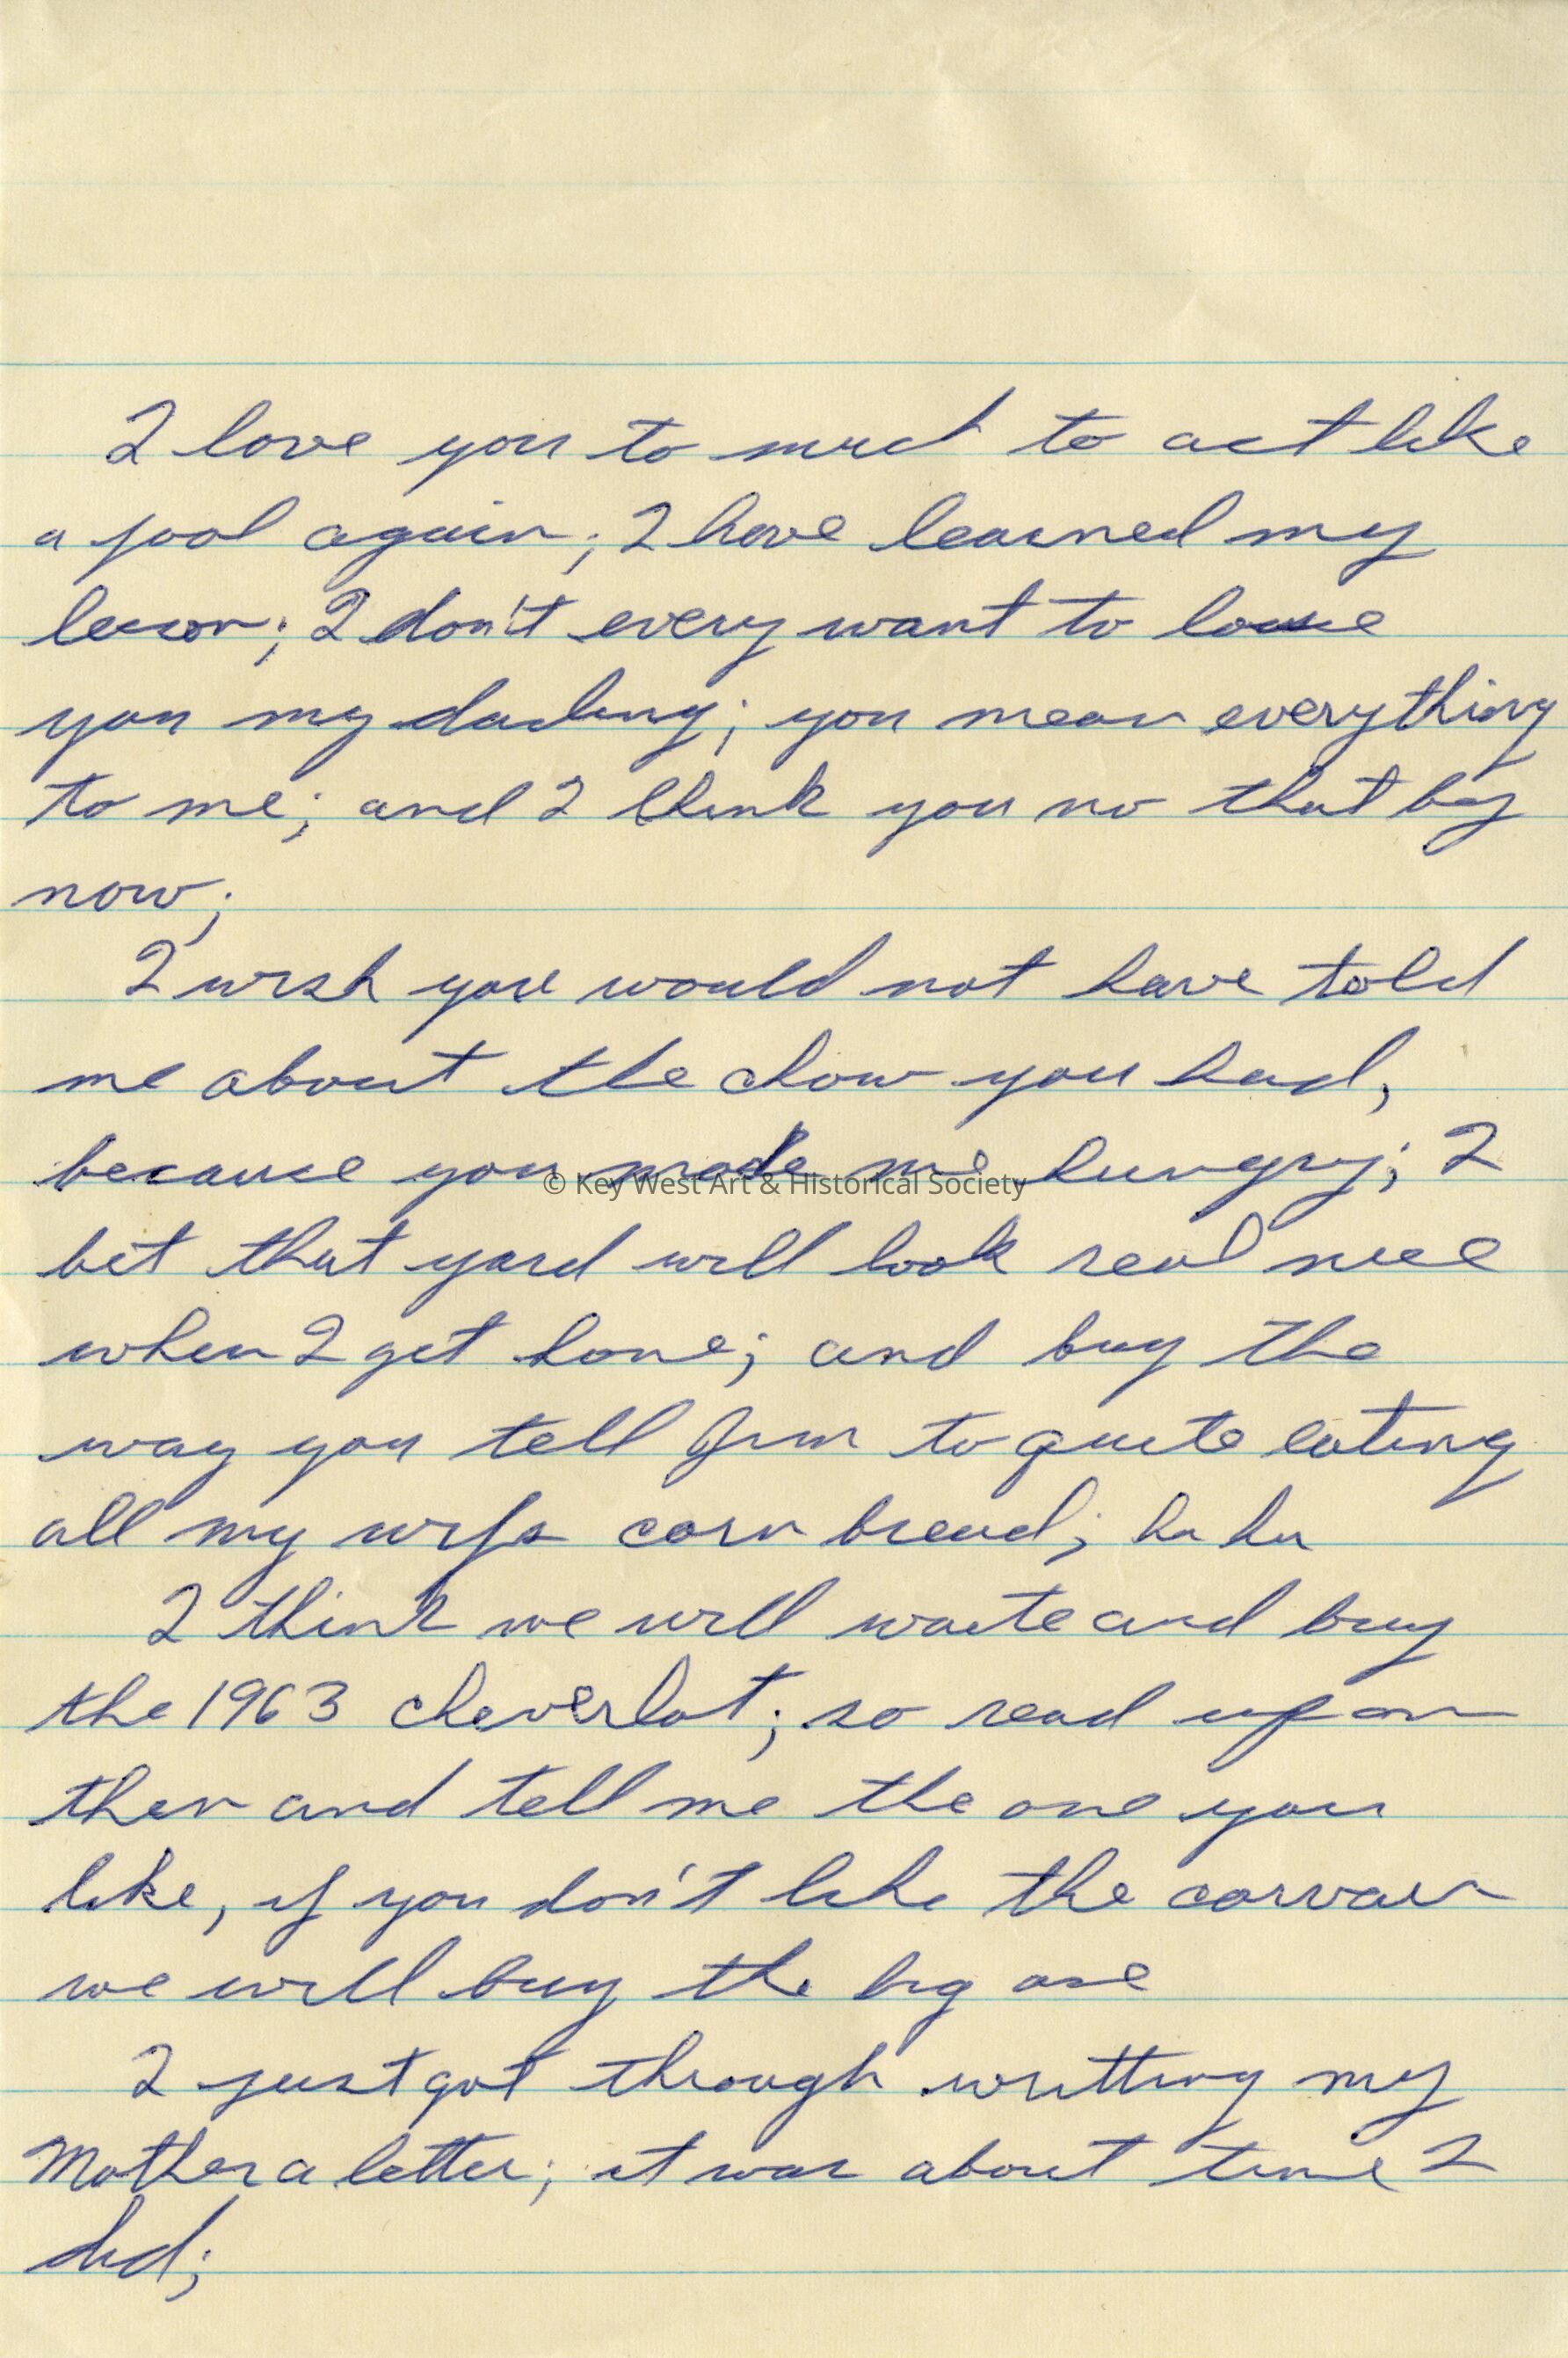 I love you to much to act like
a fool again; I have learned my
lesson; I don't every want to louse
you my darling; you mean everything
to me; and I think you no that by
now;
I wish you would not have told
me about the chow you had,
because you made me hungry; I
© Key West Art & Historical Society
bet that yard will look real nice
when I get home; and buy the
way you tell Jim to quite eating
all my wifs corn bread; ha ha
I think we will waite and buy
the 1963 cheverlot; so read up on
them and tell me the one you
like, if you don't like the corvair
we will buy the big one
I just got through writting my
Mother a letter; it was about time I
did;